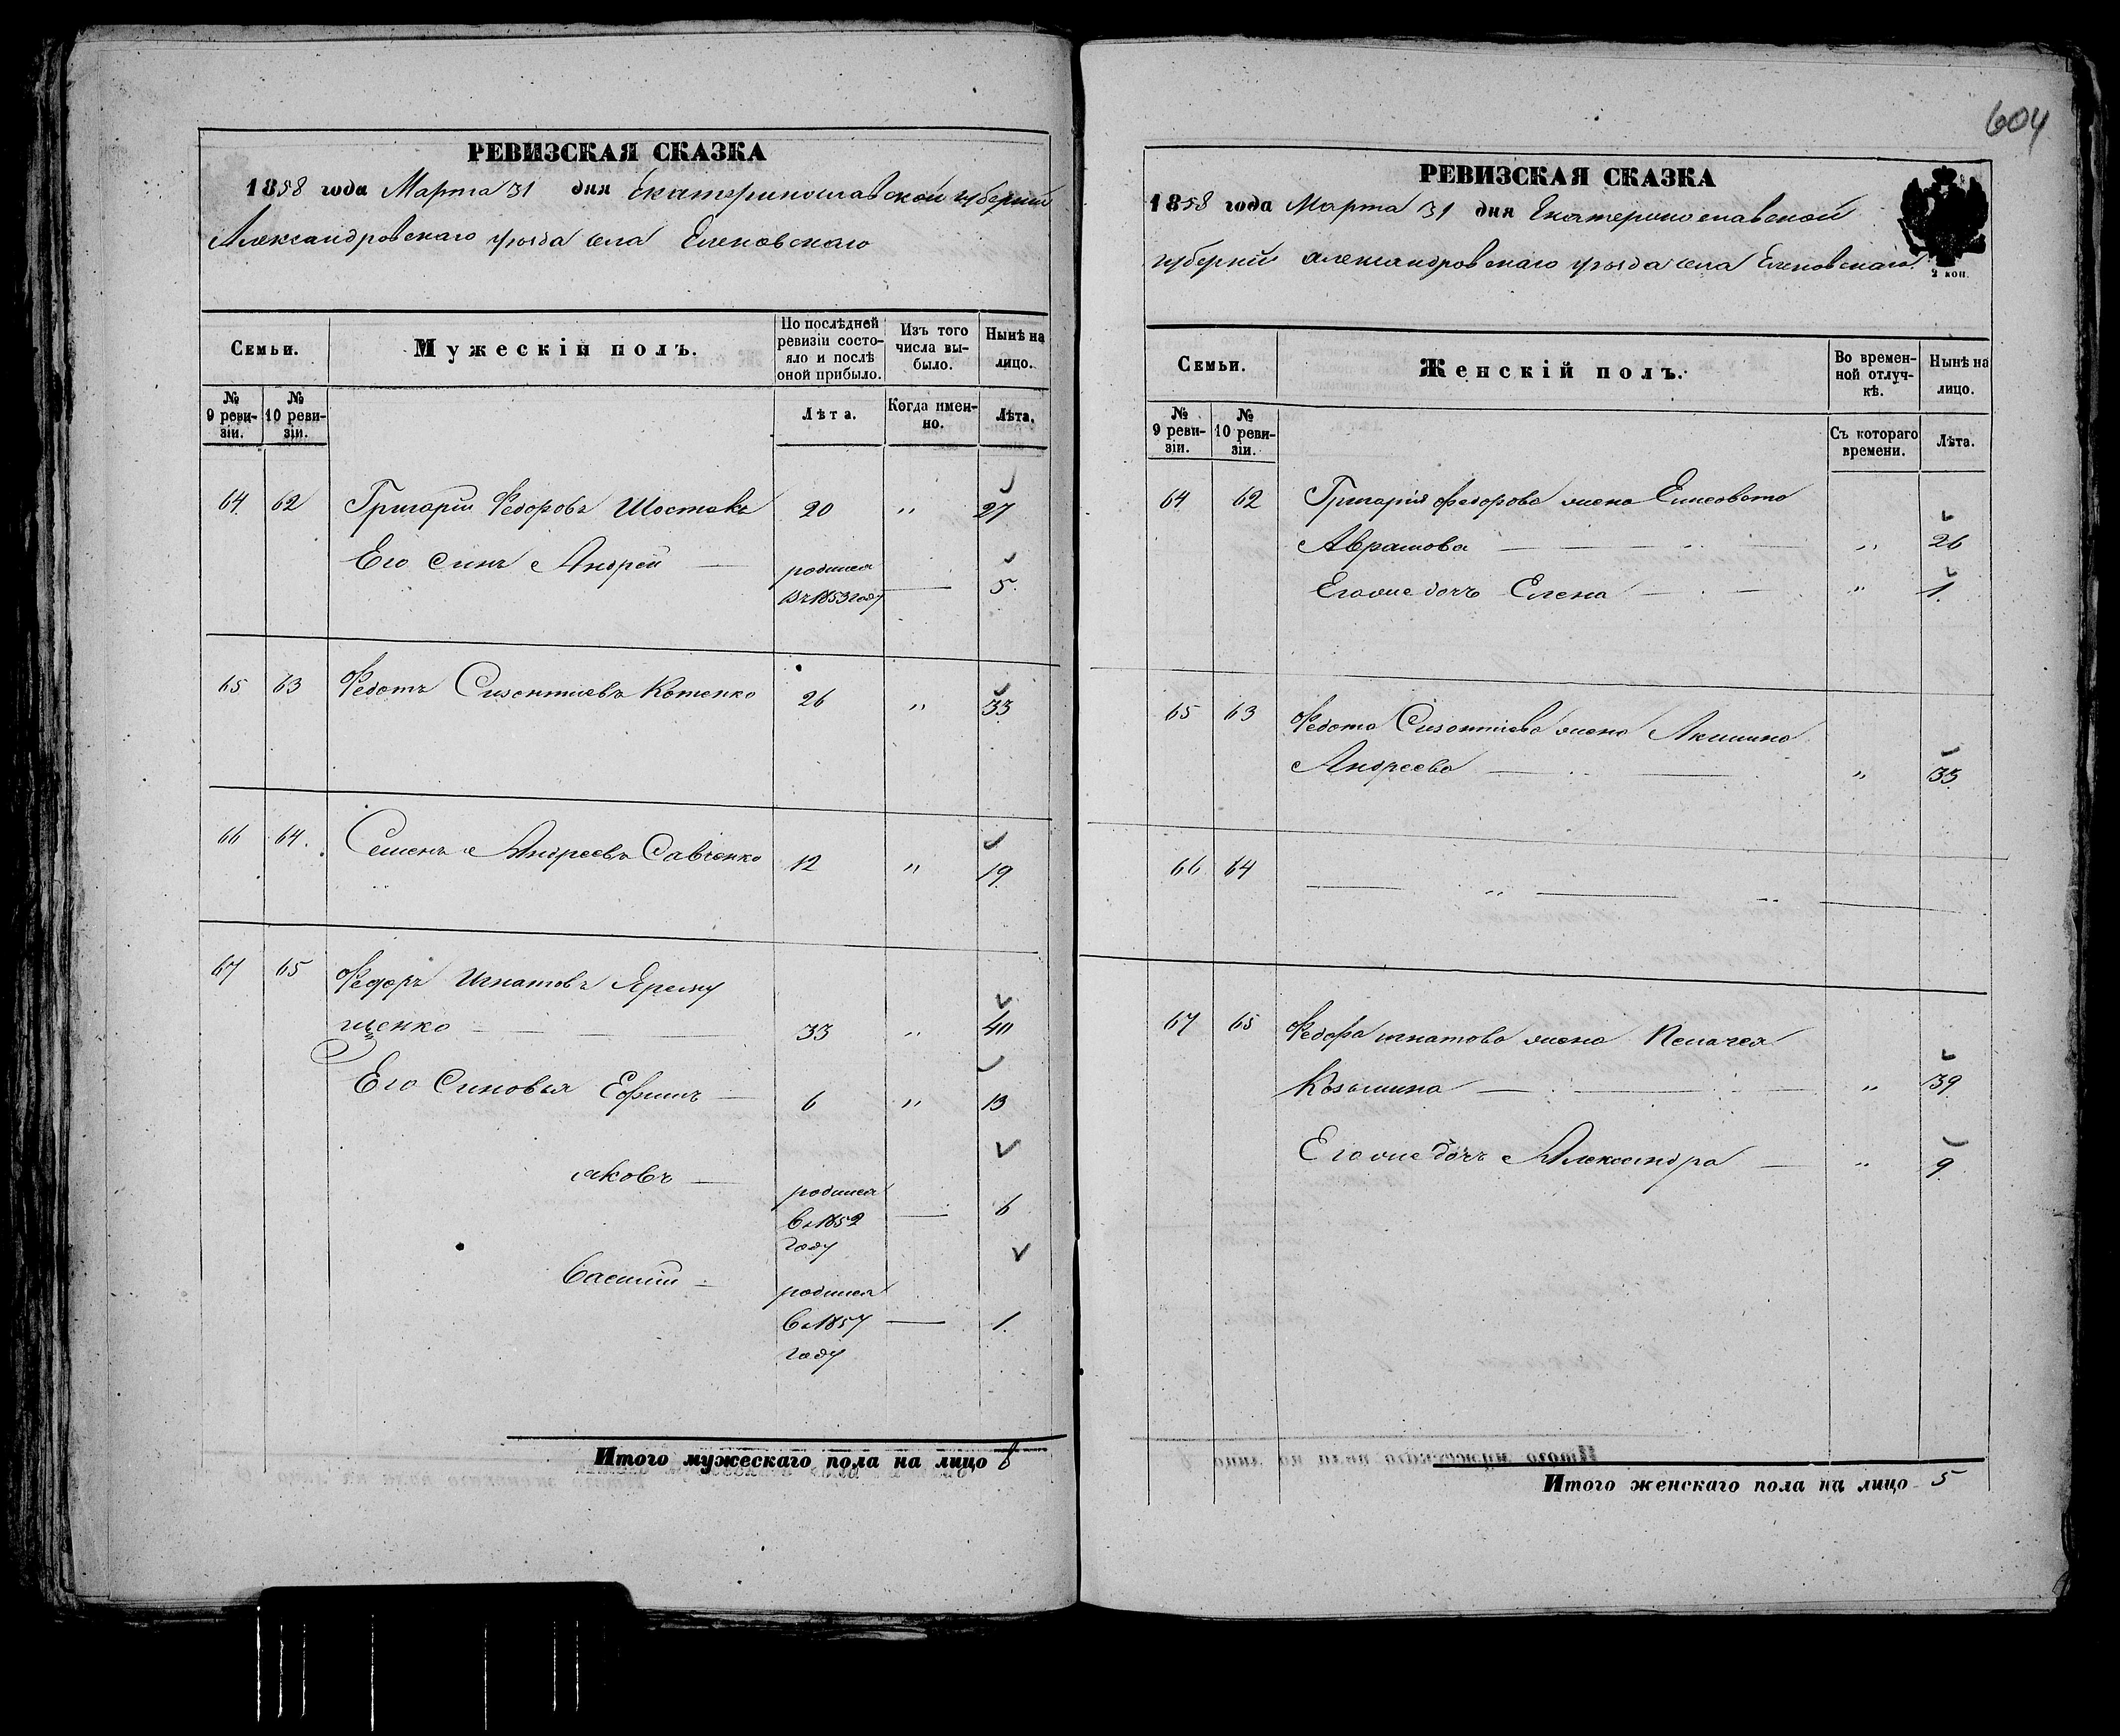 604
РЕВИЗСКАЯ СКАЗКА
1858 года Марта 31 дня Екатеринославской губерніи
Александровскаго уѣзда села Еленовскаго
Семьи.
Мужескій полъ.
По послѣдней ревизіи состояло и послѣ оной прибыло.
Изъ того числа выбыло.
Нынѣ на лицо.
№ 9 ревизіи.
№ 10 ревизіи.
Лѣта.
Когда именно.
Лѣта.
64 62 Григорій Федоровъ Шостакъ 20 " 27
Его Синъ Андрей — родился
въ 1853 году — 5.
65 63 Федотъ Сизонтиевъ Котенко 26 " 33
66 64. Семенъ Андреевъ Савченко 12 " 19.
67 65 Федоръ Игнатовъ Ярему
щенко 33 " 40
Его Синовья Ефимъ — 6 " 13
Яковъ — родился
въ 1852 — 6
году
Василій — родился
въ 1857 — 1.
году
Итого мужескаго пола на лицо 8
РЕВИЗСКАЯ СКАЗКА
1858 года Марта 31 дня Екатеринославской
губерніи Александровскаго уѣзда села Еленовскаго.
2 коп.
Семьи.
Женскій полъ.
Во временной отлучкѣ.
Нынѣ на лицо.
№ 9 ревизіи.
№ 10 ревизіи.
Съ котораго времени.
Лѣта.
64 62 Григорія Федорова жена Елисовета
Аврамова " 26
Его же дочъ Елена " 1.
65 63 Федота Сизонтиева жена Акилина
Андреева " 35
66 64 — " —
67 65 Федора Игнатова жена Пелагея
Козьмина " 39
Его же дочъ Александра — " 9.
Итого женскаго пола на лицо 5